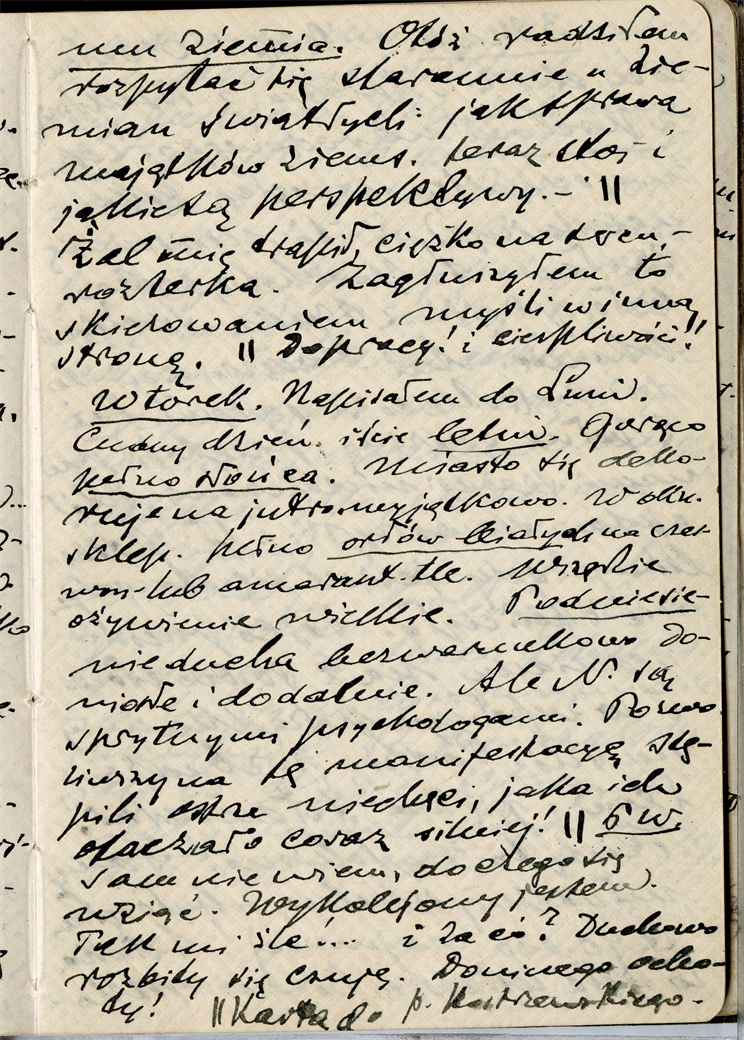 nem ziemia. Otóż radziłem
rozpytać się starannie u zie-
mian światłych: jak sprawa
majątków ziems. teraz stoi i
jakie są perspektywy. – ||
Żal mię trapił, ciężko na sercu, –
rozterka. Zagłuszyłem to
skierowaniem myśli w inną
stronę. || Do pracy! i cierpliwości!!
Wtorek. Napisałem do Luni.
Cudny dzień. iście letni. Gorąco
pełno słońca. Miasto się deko-
ruje na jutro wyjątkowo. W okn.
sklep. pełno orłów białych na czer-
won. lub amarant. tle. Wszędzie
ożywienie wielkie. Podniesie-
nie ducha bezwarunkowo do-
niosłe i dodatnie. Ale N. są
sprytnymi psychologami. Pozwo-
liwszy na tę manifestację, stę-
pili ostrze niechęci, jaka ich
otaczała coraz silniej! || 6 w.
Sam nie wiem, do czego się
wziąć. Wykolejony jestem.
Tak mi źle!... i za co? Duchowo
rozbity się czuję. Do niczego ocho-
ty! || Kartka do p. Kutrzewskiego.